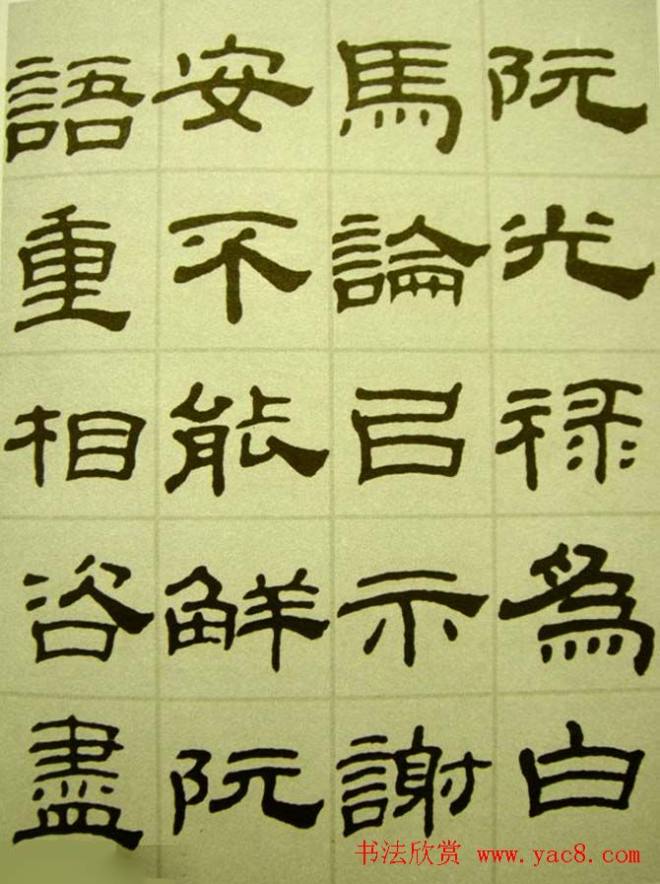 阮光禄爲白
馬論㠯示謝
安不能觧阮
語重相咨盡
书法欣赏 www.yac8.com